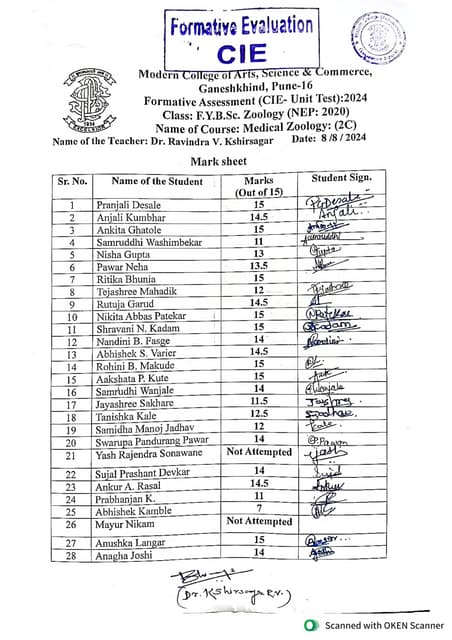 Formative Evaluation
CIE
Modern College of Arts, Science & Commerce,
Ganeshkhind, Pune-16
Formative Assessment (CIE- Unit Test):2024
Class: F.Y.B.Sc. Zoology (NEP: 2020)
Name of Course: Medical Zoology: (2C)
Name of the Teacher: Dr. Ravindra V. Kshirsagar Date: 8/8/2024
Mark sheet
Sr. No. Name of the Student Marks (Out of 15) Student Sign.
1 Pranjali Desale 15 PRDesale
2 Anjali Kumbhar 14.5 Anjali
3 Ankita Ghatole 15
4 Samruddhi Washimbekar 11
5 Nisha Gupta 13 Gupta
6 Pawar Neha 13.5
7 Ritika Bhunia 15
8 Tejashree Mahadik 12
9 Rutuja Garud 14.5
10 Nikita Abbas Patekar 15
11 Shravani N. Kadam 15
12 Nandini B. Fasge 14
13 Abhishek S. Varier 14.5
14 Rohini B. Makude 15
15 Aakshata P. Kute 15
16 Samrudhi Wanjale 14
17 Jayashree Sakhare 11.5
18 Tanishka Kale 12.5
19 Samidha Manoj Jadhav 12
20 Swarupa Pandurang Pawar 14
21 Yash Rajendra Sonawane Not Attempted
22 Sujal Prashant Devkar 14
23 Ankur A. Rasal 14.5
24 Prabhanjan K. 11
25 Abhishek Kamble 7
26 Mayur Nikam Not Attempted
27 Anushka Langar 15
28 Anagha Joshi 14
(Dr. Kshirsagar R.V.)
Scanned with OKEN Scanner